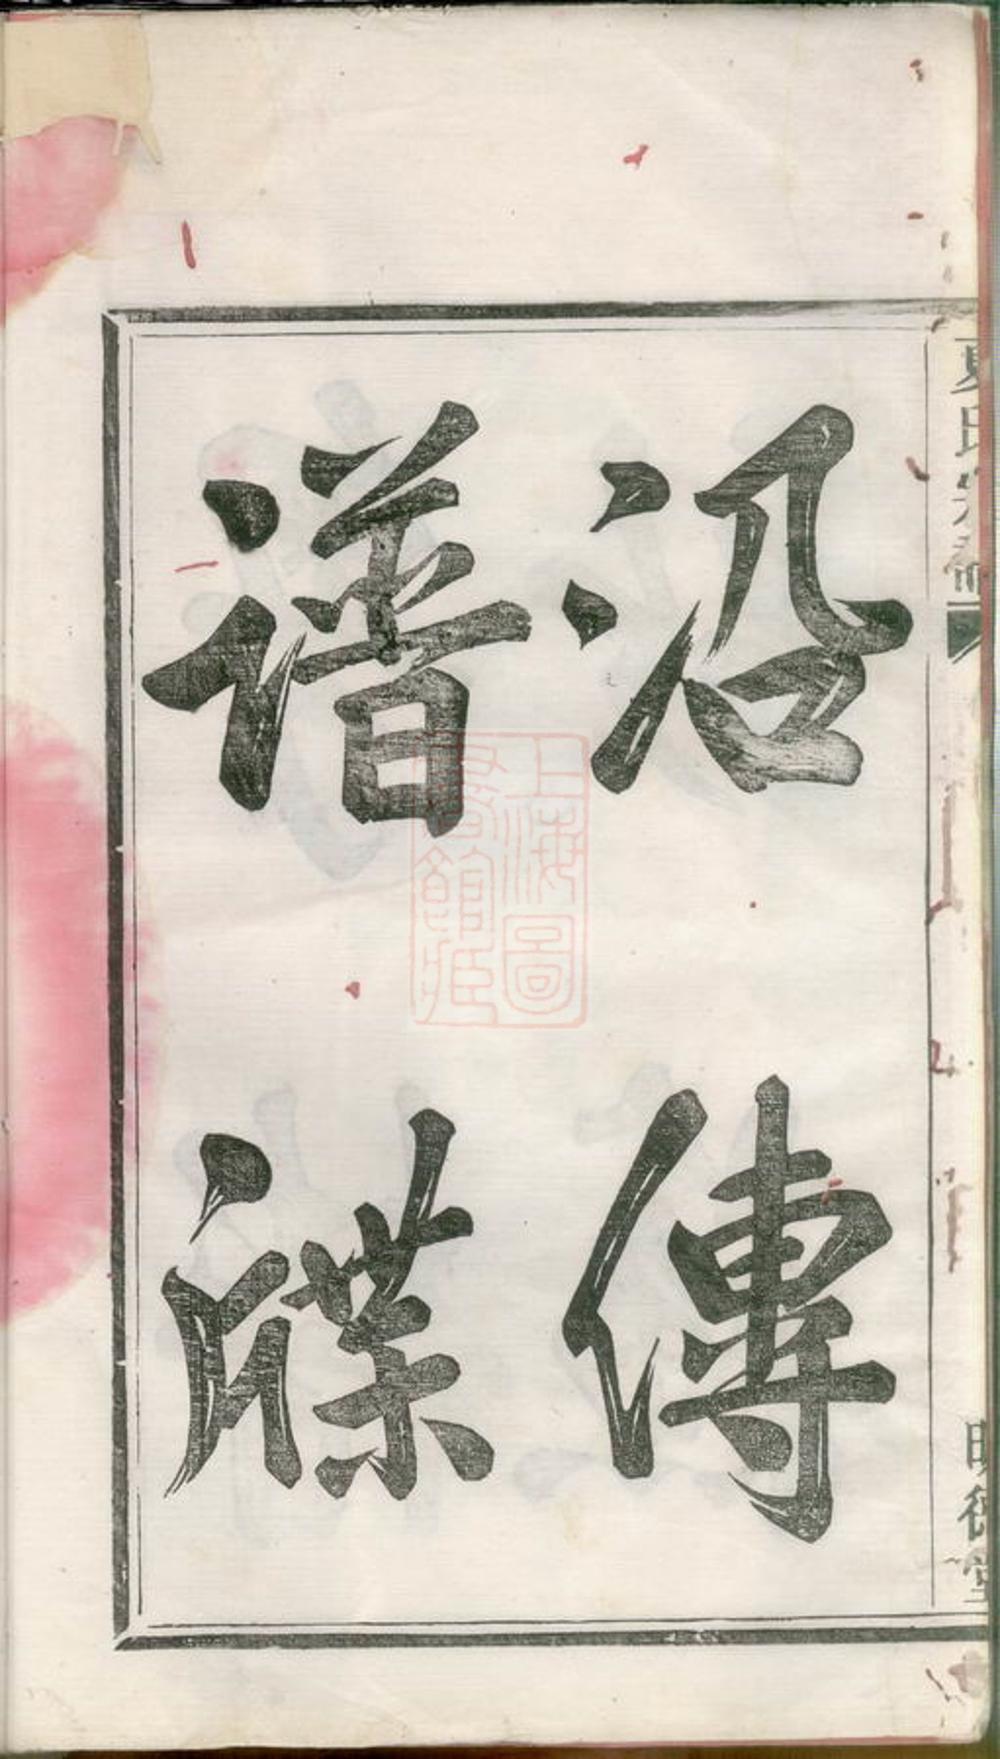 沿傳
譜牒
夏氏宗譜
明德堂
上海圖
書館藏